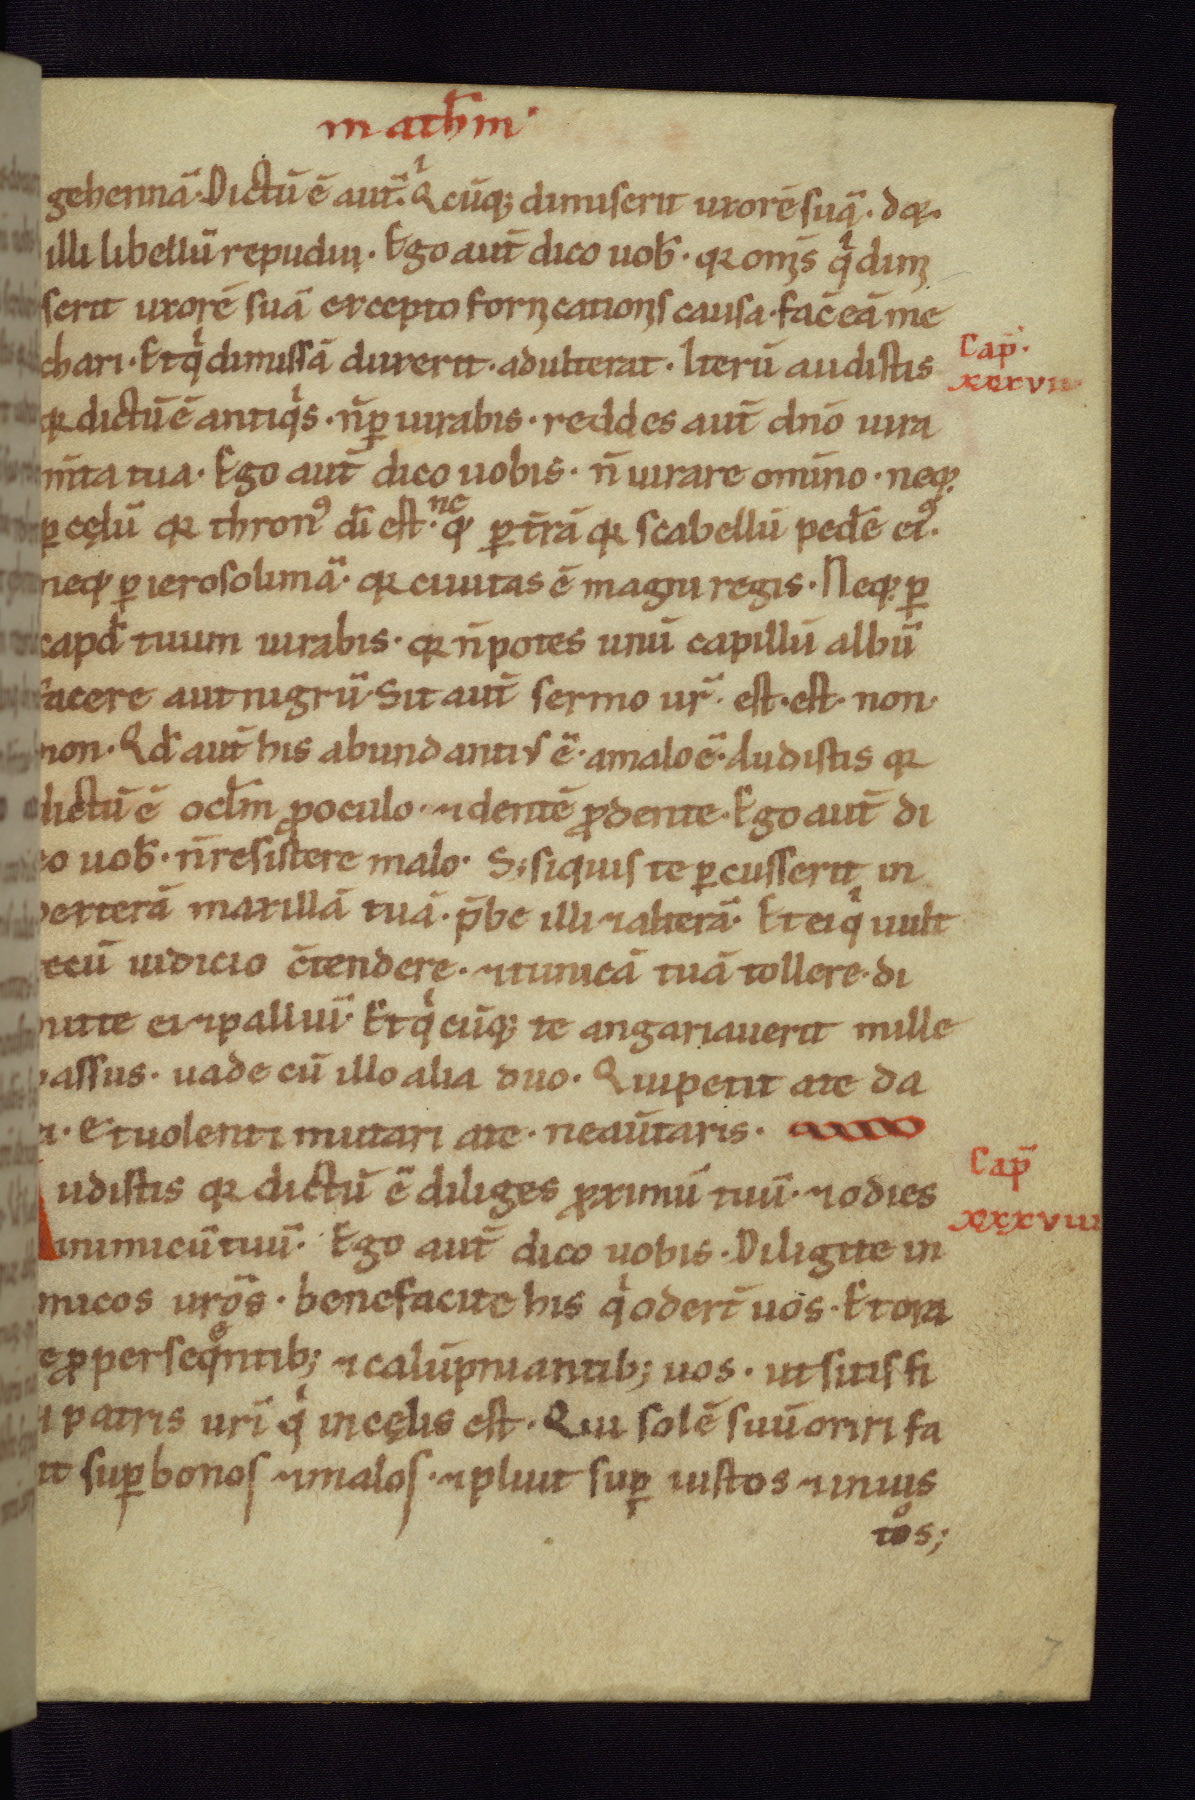 math̄m·
gehennā· Dictū ē aut̄· Qͥcūq; dimiserit uxorē suā· dꝗ·
illi libellū repudii· Ego aut̄ dico uob̄· qꝛ om̄s qͥ dimi
serit uxorē suā excepto fornicationis causa· fac̄ eā me
chari· Et qͥ dimissā duxerit· adulterat· Iterū audistis
Cap̄·
xxxvii
qꝛ dictū ē antiqͥs· n̄ ꝑiurabis· reddes aut̄ dn̄o iura
m̄ta tua· Ego aut̄ dico uobis· n̄ iurare omīno· neq;
ꝑ cęlū qꝛ thronꝰ dī est· neq; ꝑ t̄rā qꝛ scabellū pedē eiꝰ·
neq; ꝑ ierosolimā· qꝛ ciuitas ē magni regis· Neq; ꝑ
capđ tuum iurabis· qꝛ n̄ potes unū capillū albū
facere aut nigrū· Sit aut̄ sermo ur̄· est· est· non·
non· Qđ aut̄ his abundantiꝰ ē· a malo ē· Audistis qꝛ
dictū ē ocl̄m ꝓ oculo· ⁊ dentē ꝓ dente· Ego aut̄ di
co uob̄· n̄ resistere malo· S; si quis te ꝑcusserit in
dexterā maxillā tuā· p̄be illi ⁊ alterā· Et ei qͥ uult
tecū iudicio c̄tendere· ⁊ tunicā tuā tollere· di
mitte ei ⁊ palliū· Et qͥcūq; te angariauerit mille
passus· uade cū illo alia duo· Qui petit a te da
ei· et uolenti mutari a te· ne au̅taris·
Audistis qꝛ dictū ē diliges ꝓximū tuū· ⁊ odies
Cap̄
xxxviii
inimicū tuū· Ego aut̄ dico uobis· Diligite in
imicos uros· benefacite his qͥ odert̄ uos· Et ora
te ꝓ perseqͤntib; ⁊ calūpniantib; uos· ut sitis fi
lii patris uri̅ qͥ in cęlis est· Qui solē suū oriri fa
cit suꝑ bonos ⁊ malos· ⁊ pluit suꝑ iustos ⁊ inius
tos;
7